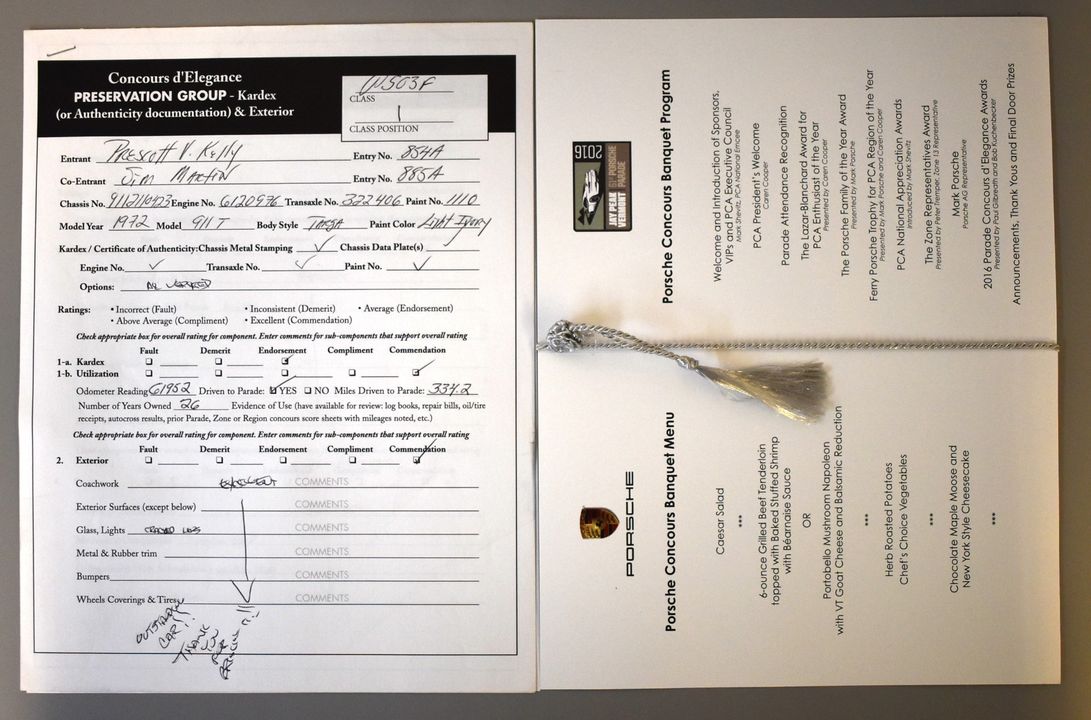 Concours d'Elegance
PRESERVATION GROUP - Kardex
(or Authenticity documentation) & Exterior
WS03F
CLASS
1
CLASS POSITION
Entrant Prescott V. Kelly Entry No. 854A
Co-Entrant Jim Martin Entry No. 885A
Chassis No. 9112110425 Engine No. 6120976 Transaxle No. 322406 Paint No. 1110
Model Year 1972 Model 911T Body Style Targa Paint Color Light Ivory
Kardex / Certificate of Authenticity: Chassis Metal Stamping ✓ Chassis Data Plate(s) ✓
Engine No. ✓ Transaxle No. ✓ Paint No. ✓
Options:
Ratings: • Incorrect (Fault) • Inconsistent (Demerit) • Average (Endorsement)
• Above Average (Compliment) • Excellent (Commendation)
Check appropriate box for overall rating for component. Enter comments for sub-components that support overall rating
Fault Demerit Endorsement Compliment Commendation
1-a. Kardex
1-b. Utilization
Odometer Reading 61952 Driven to Parade: YES NO Miles Driven to Parade: 337.2
Number of Years Owned 26 Evidence of Use (have available for review: log books, repair bills, oil/tire
receipts, autocross results, prior Parade, Zone or Region concours score sheets with mileages noted, etc.)
Check appropriate box for overall rating for component. Enter comments for sub-components that support overall rating
Fault Demerit Endorsement Compliment Commendation
2. Exterior
Coachwork Excellent COMMENTS
Exterior Surfaces (except below) COMMENTS
Glass, Lights COMMENTS
Metal & Rubber trim COMMENTS
Bumpers COMMENTS
Wheels Coverings & Tires COMMENTS
Outstanding
Car!!
Thank
you
for
bringing it!!
2016
JAY PEAK
VERMONT
61ST PORSCHE
PARADE
Porsche Concours Banquet Program
Welcome and Introduction of Sponsors,
VIPs and PCA Executive Council
Mark Shevitz, PCA National Emcee
PCA President's Welcome
Caren Cooper
Parade Attendance Recognition
The Lazar-Blanchard Award for
PCA Enthusiast of the Year
Presented by Caren Cooper
The Porsche Family of the Year Award
Presented by Mark Porsche
Ferry Porsche Trophy for PCA Region of the Year
Presented by Mark Porsche and Caren Cooper
PCA National Appreciation Awards
Introduced by Mark Shevitz
The Zone Representatives Award
Presented by Peter Tremper, Zone 13 Representative
Mark Porsche
Porsche AG Representative
2016 Parade Concours d'Elegance Awards
Presented by Paul Gilbreath and Bob Kuchenbecker
Announcements, Thank Yous and Final Door Prizes
PORSCHE
Porsche Concours Banquet Menu
Caesar Salad
***
6-ounce Grilled Beef Tenderloin
topped with Baked Stuffed Shrimp
with Béarnaise Sauce
OR
Portobello Mushroom Napoleon
with VT Goat Cheese and Balsamic Reduction
***
Herb Roasted Potatoes
Chef's Choice Vegetables
***
Chocolate Maple Moose and
New York Style Cheesecake
***